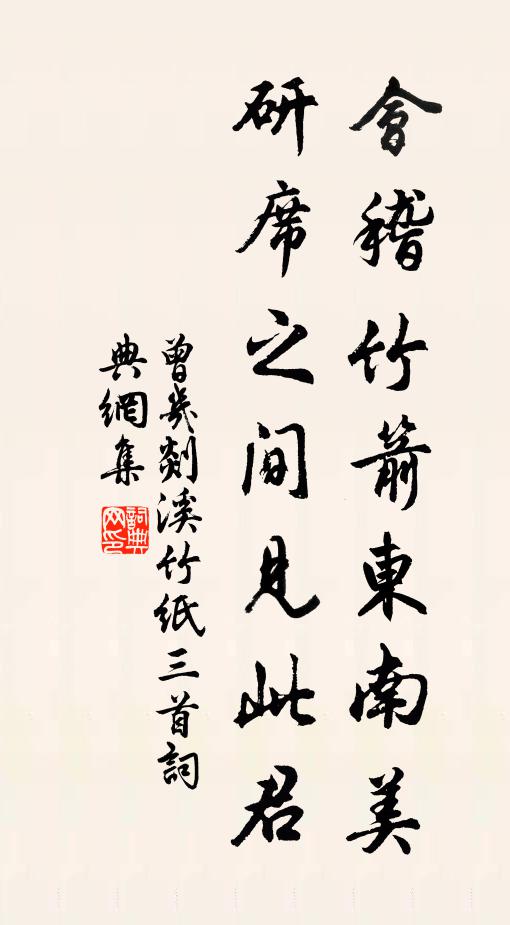 會稽竹箭東南美
研席之間見此君
曾幾剡溪竹紙三首詞
典網集
詞典網印